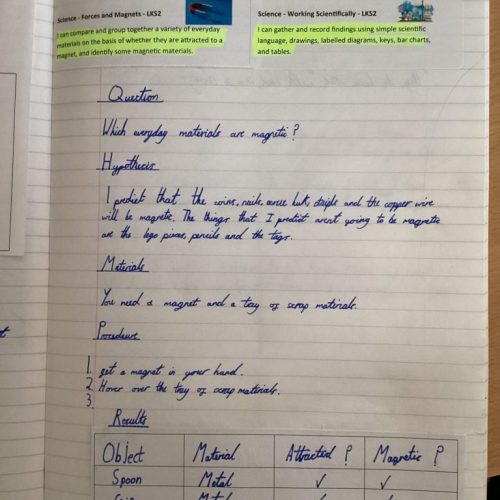 Science - Forces and Magnets - LKS2
I can compare and group together a variety of everyday
materials on the basis of whether they are attracted to a
magnet, and identify some magnetic materials.
Science - Working Scientifically - LKS2
I can gather and record findings using simple scientific
language, drawings, labelled diagrams, keys, bar charts,
and tables.
Question
Which everyday materials are magnetic?
Hypothesis
I predict that the coins, nails, staple and the copper wire
will be magnetic. The things that I predict arent going to be magnetic
are the lego pieces, pencils and the tags.
Materials
You need a magnet and a tray of scrap materials.
Procedure
1. get a magnet in your hand.
2. Hover over the tray of scrap materials.
3.
Results
Object Material Attracted? Magnetic?
Spoon Metal ✓ ✓